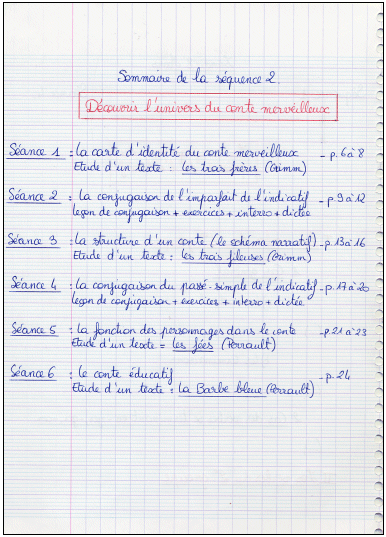 Sommaire de la séquence 2.
Découvrir l'univers du conte merveilleux
Séance 1 : la carte d'identité du conte merveilleux - p. 6 à 8
Etude d'un texte : les trois frères (Grimm)
Séance 2 : la conjugaison de l'imparfait de l'indicatif - p 9 à 12
leçon de conjugaison + exercices + interro + dictée
Séance 3 : la structure d'un conte (le schéma narratif) - p. 13 à 16
Etude d'un texte : les trois fileuses (Grimm)
Séance 4 : la conjugaison du passé-simple de l'indicatif - p. 17 à 20
leçon de conjugaison + exercices + interro + dictée
Séance 5 : la fonction des personnages dans le conte - p 21 à 23
Etude d'un texte = les fées (Perrault)
Séance 6 : le conte éducatif - p. 24
Etude d'un texte : la Barbe bleue (Perrault)